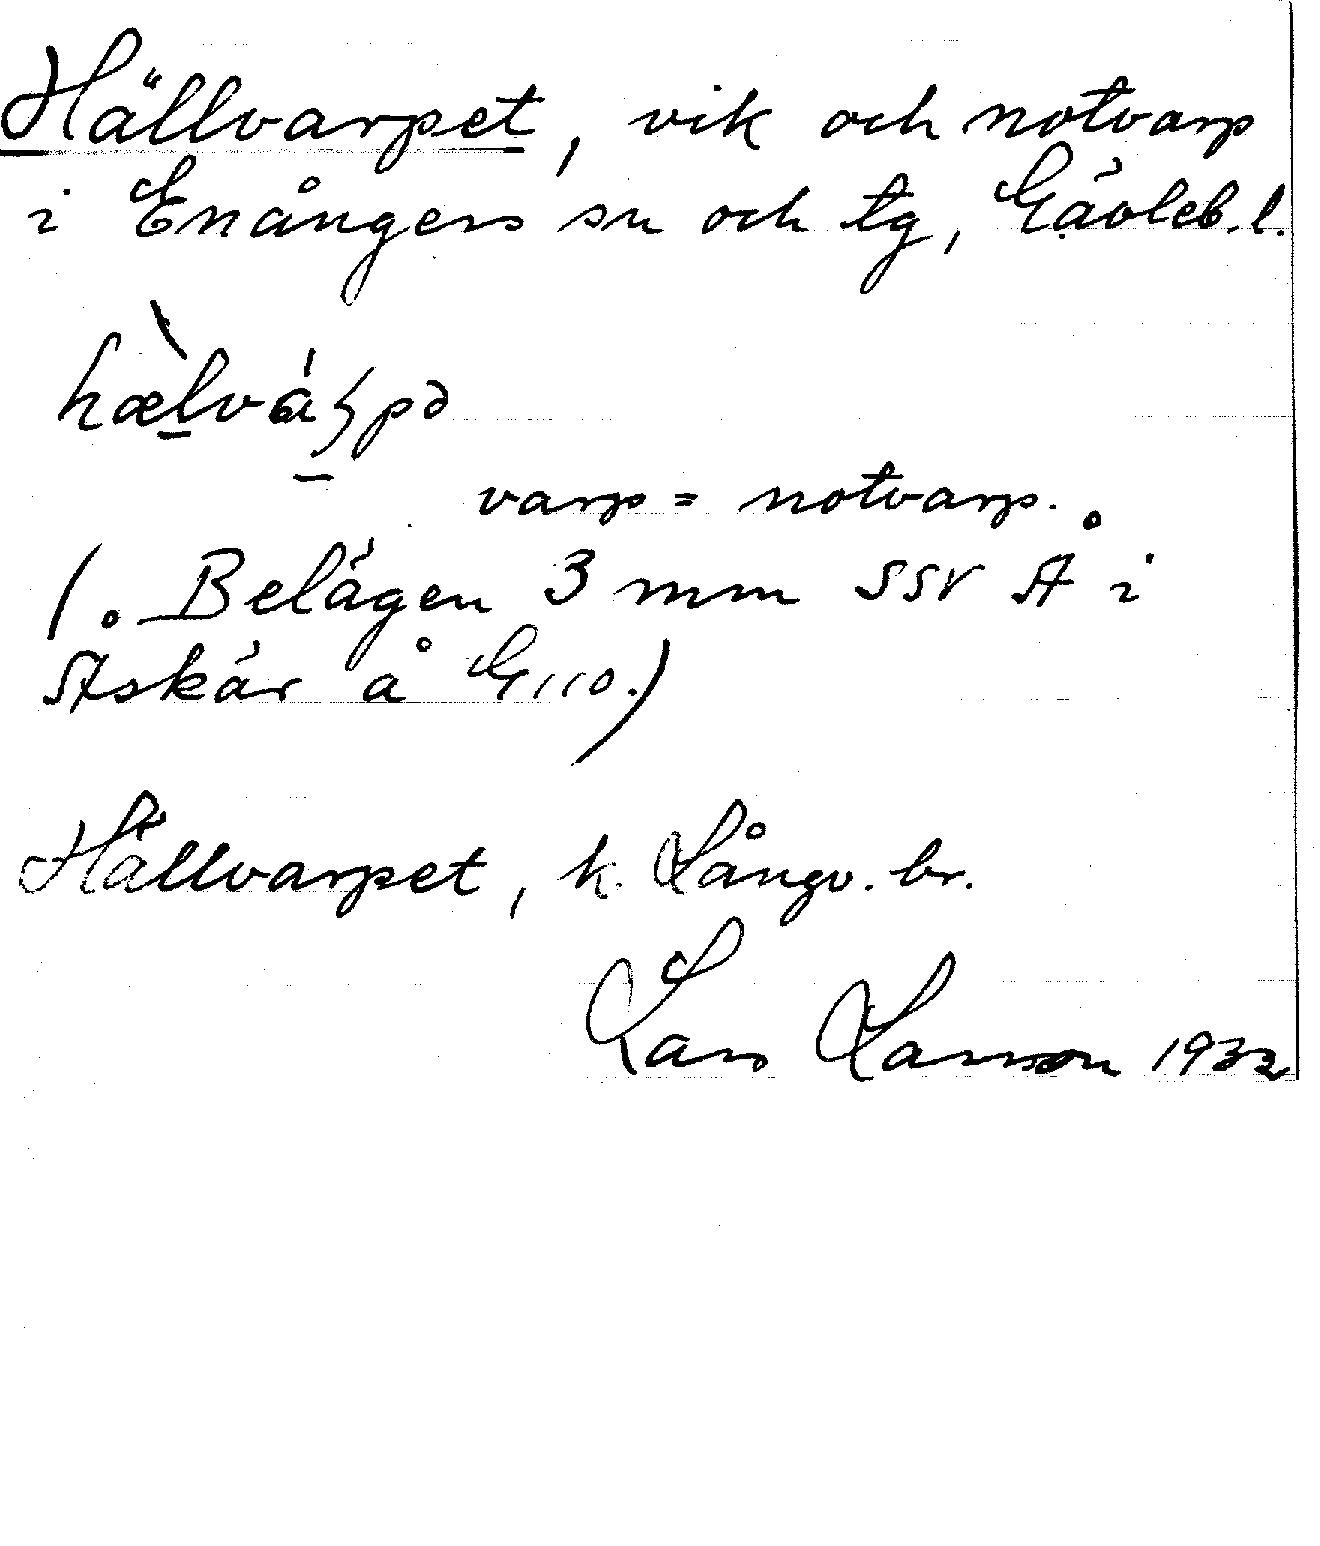 Hällvarpet, vik och notvarp
i Enångers sn och tg, Gävleb. l.
varp = notvarp.
(. Belägen 3 mm SSV Å i
Åskär å G 110.)
Hällvarpet, k. Långv. br.
Lars Larsson 1932